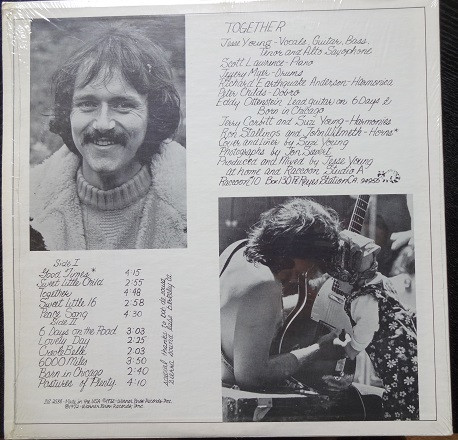 TOGETHER
Jesse Young-Vocals, Guitar, Bass,
Tenor and Alto Saxophone
Scott Lawrence-Piano
Jeffery Myer-Drums
Richard Earthquake Anderson-Harmonica
Peter Childs-Dobro
Eddy Ottenstein Lead guitar on 6 Days &
Born in Chicago
Jerry Corbitt and Suzi Young-Harmonies
Ron Stallings and John Wilmeth-Horns*
Cover and Liner by Suzi Young
Photographs by Jon Sievert
Produced and Mixed by Jesse Young
at home and Raccoon Studio A
Raccoon #10 Box 130 Pt. Reyes Station CA. 94956
Side I
Good Times* 4:15
Sweet Little Child 2:55
Together 4:48
Sweet Little 16 2:58
Peace Song 4:30
Side II
6 Days on the Road 3:03
Lovely Day 2:25
Creole Belle 2:03
6000 Miles 3:50
Born in Chicago 2:40
Pastures of Plenty 4:10
special thanks to
BS 2588 - Made in the USA ©1972-Warner Bros. Records, Inc.
℗1972-Warner Bros. Records, Inc.